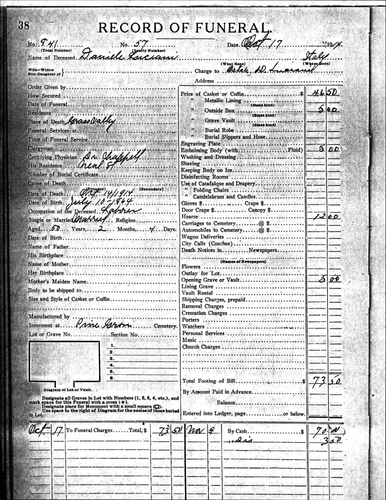 38
RECORD OF FUNERAL
No. 841 No. 57 Date Oct 17
(Total Number) (Yearly Number)
Name of Deceased Daniele
Charge to
Order Given by
How Secured
Date of Funeral
Residence
Place of Death Grass Valley
Funeral Services at
Time of Funeral Service
Clergyman
Certifying Physician Dr Chappell
His Residence
Number of Burial Certificate
Cause of Death
Date of Death Oct 14 1914
Date of Birth July 10 1864
Occupation of the Deceased Laborer
Single or Married Religion
Aged 50 Years 2 Months 4 Days
Date of Birth
Name of Father
His Birthplace
Name of Mother
Her Birthplace
Mother's Maiden Name
Body to be shipped to
Size and Style of Casket or Coffin
Manufactured by
Interment at Pine Grove Cemetery
Lot or Grave No. Section No.
1.
2.
3.
4.
5.
Diagram of Lot or Vault.
Designate all Graves in Lot with Numbers (1, 2, 3, 4, etc.), and
mark space for this Funeral with a cross (+).
Designate place for Monument with a small square (□).
Use space to the right of Diagram for the names of those buried
in Lot.
Price of Casket or Coffin $ 46 50
" Metallic Lining
Outside Box 5 00
" Grave Vault
" Burial Robe
" Burial Slippers and Hose
Engraving Plate
Embalming Body (with Fluid) 5 00
Washing and Dressing
Shaving
Keeping Body on Ice
Disinfecting Rooms
Use of Catafalque and Drapery
" Folding Chairs
" Candelabrum and Candles
Gloves $ Crape $
Door Crape $ Canopy $
Hearse 12 00
Carriages to Cemetery @ $
Automobiles to Cemetery @ $
Wagon Deliveries
City Calls (Coaches)
Death Notices in Newspapers
(Names of Newspapers)
Flowers
Outlay for Lot
Opening Grave or Vault 5 00
Lining Grave
Vault Rental
Shipping Charges, prepaid
Removal Charges
Cremation Charges
Porters
Watchers
Personal Services
Music
Church Charges
Total Footing of Bill $ 73 50
By Amount Paid in Advance
Balance
Entered into Ledger, page or below.
Oct 17 To Funeral Charges Total, $ 73 50 Nov 9 By Cash 70 00
dis 3 50